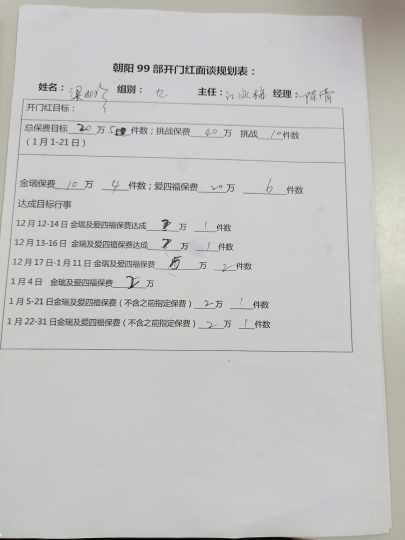 朝阳 99 部开门红面谈规划表：
姓名：梁 组别：九 主任：江泳梅 经理：陈霄
开门红目标：
总保费目标 20 万 件数；挑战保费 40 万 挑战 10 件数
（1 月 1-21 日）
金瑞保费 10 万 4 件数；爱四福保费 20 万 6 件数
达成目标行事
12 月 12-14 日 金瑞及爱四福保费达成 万 1 件数
12 月 13-16 日 金瑞及爱四福保费达成 万 1 件数
12 月 17 日-1 月 11 日 金瑞及爱四福保费 万 2 件数
1 月 4 日 金瑞及爱四福保费 2 万
1 月 5-21 日金瑞及爱四福保费（不含之前指定保费）2 万 1 件数
1 月 22-31 日金瑞及爱四福保费（不含之前指定保费）2 万 1 件数